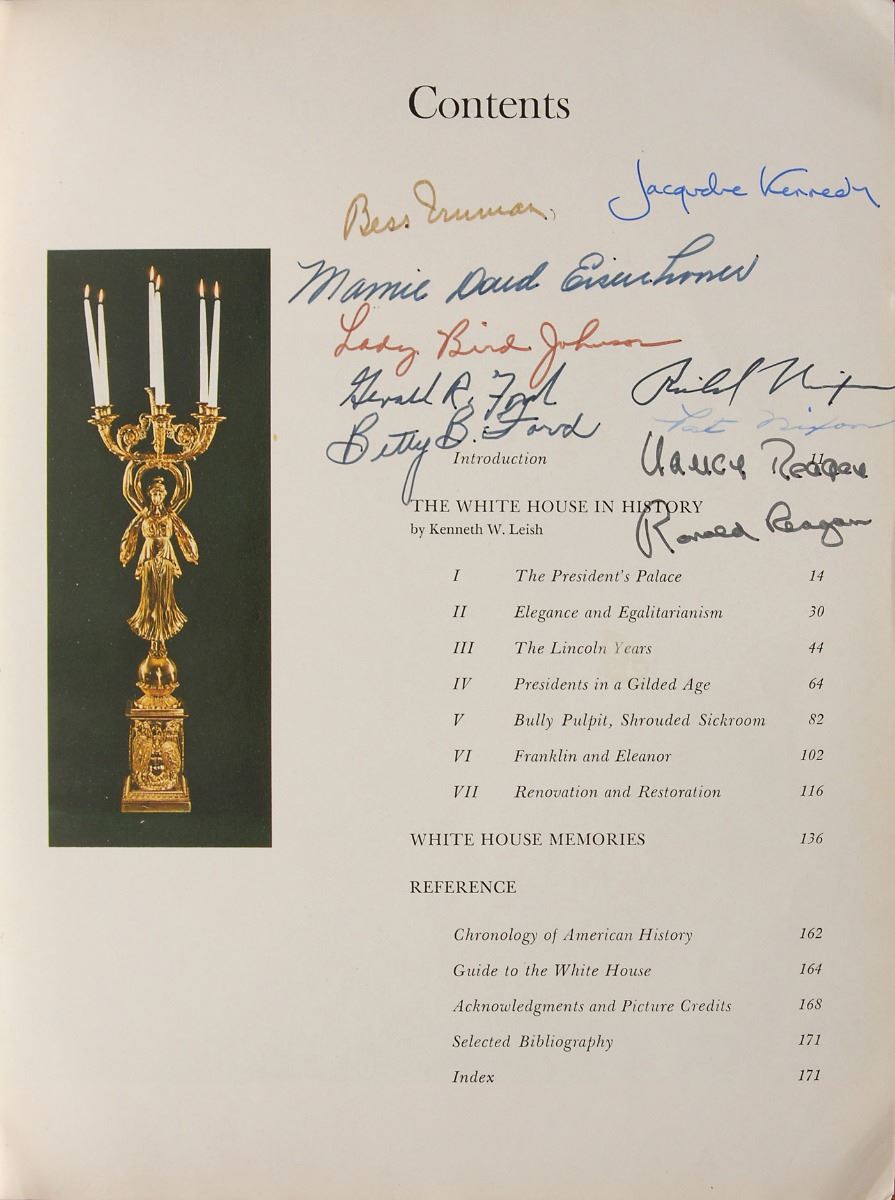 Contents
Jacqueline Kennedy
Bess Truman
Mamie Doud Eisenhower
Lady Bird Johnson
Gerald R. Ford
Richard Nixon
Betty B. Ford
Pat Nixon
Introduction 11
Nancy Reagan
THE WHITE HOUSE IN HISTORY
by Kenneth W. Leish
Ronald Reagan
I The President's Palace 14
II Elegance and Egalitarianism 30
III The Lincoln Years 44
IV Presidents in a Gilded Age 64
V Bully Pulpit, Shrouded Sickroom 82
VI Franklin and Eleanor 102
VII Renovation and Restoration 116
WHITE HOUSE MEMORIES 136
REFERENCE
Chronology of American History 162
Guide to the White House 164
Acknowledgments and Picture Credits 168
Selected Bibliography 171
Index 171